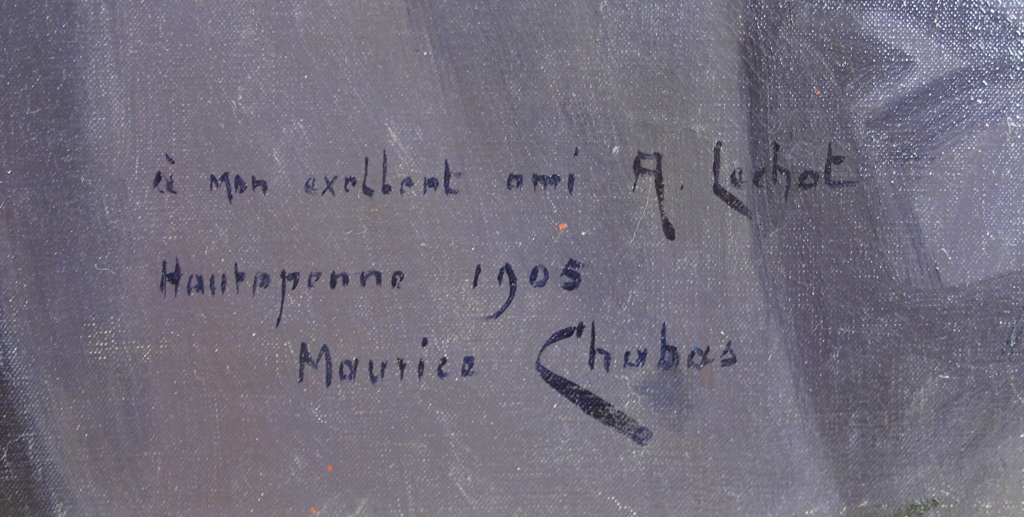 à mon excellent ami A. Lechot
Hautepenne 1905
Maurice Chabas